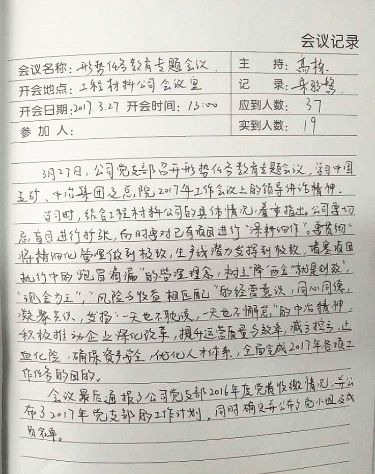 会议记录
会议名称：形势任务教育专题会议 主 持：高
开会地点：工程材料公司会议室 记 录：
开会日期：2017.3.27 开会时间：13:00 应到人数：37
参 加 人： 实到人数：19
3月27日，公司党支部召开形势任务教育专题会议，学习中国
五矿、中冶集团总院2017年工作会议上的领导讲话精神。
学习时，结合工程材料公司的具体情况，着重指出，公司要切
项目进行扩张，同时要对已有项目进行"深耕细作"，要贯彻
将精细化管理做到极致，生产线潜力发挥到极致，堵塞项目
执行中的"跑冒滴漏"的管理理念，树立"降 就是创效"，
"现金为王"，"风险与收益相匹配"的经营意识，同心同德，
凝聚共识，发扬"一天也不耽误，一天也不懈怠"的中冶精神，
积极推动企业深化改革，提升运营质量与效率，减亏控亏，止
血化险，确保资 安全，优化人才体系，全面完成2017年各项工
作任务的目的。
会议最后通报了公司党支部2016年度党费收缴情况，并公
布了2017年党支部的工作计划，同时确定并公布了党小组
员名单。